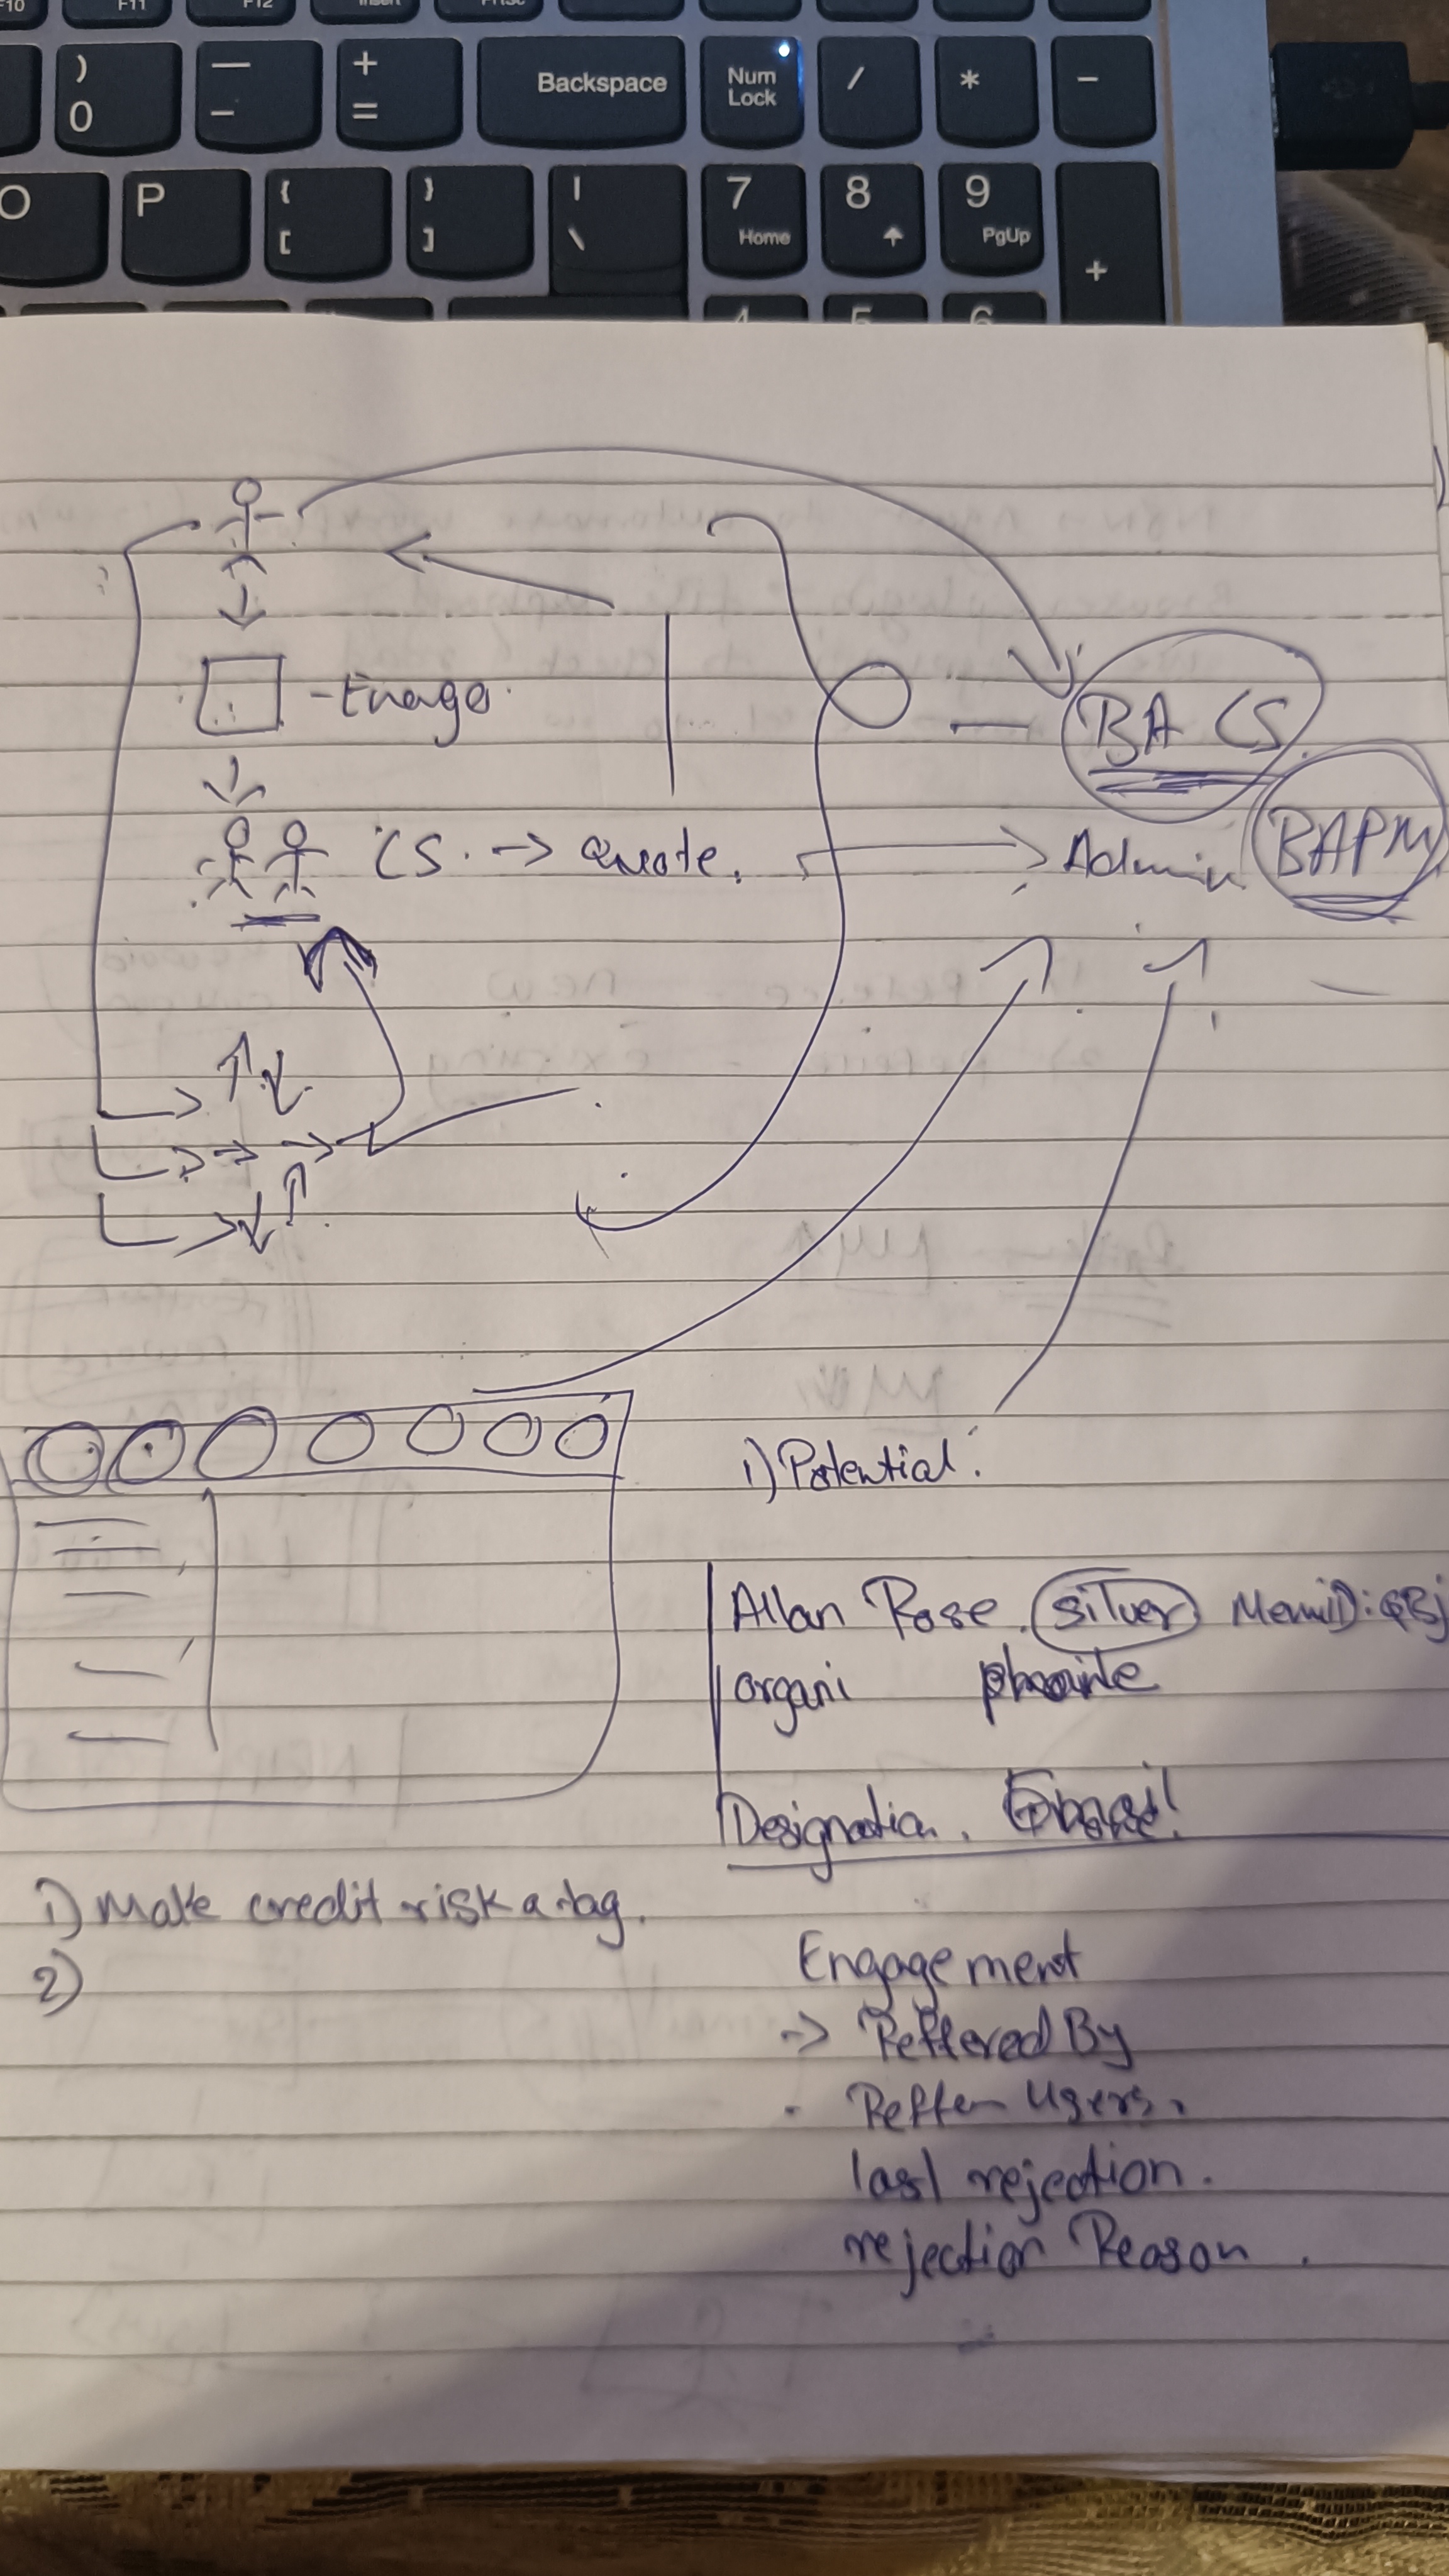 F10 F11 F12 Insert PrtSc
) — + Backspace Num Lock / * -
0 - =
O P { } | 7 8 9 +
[ ] \ Home PgUp
4 5 6
BA CS
CS. -> Quote. Admin BAPM
1) Potential.
Allan Rose. silver
organi
Designation. Email
1) Make credit risk a tag.
2)
Engagement
-> Reffered By
Users.
last rejection.
rejection Reason